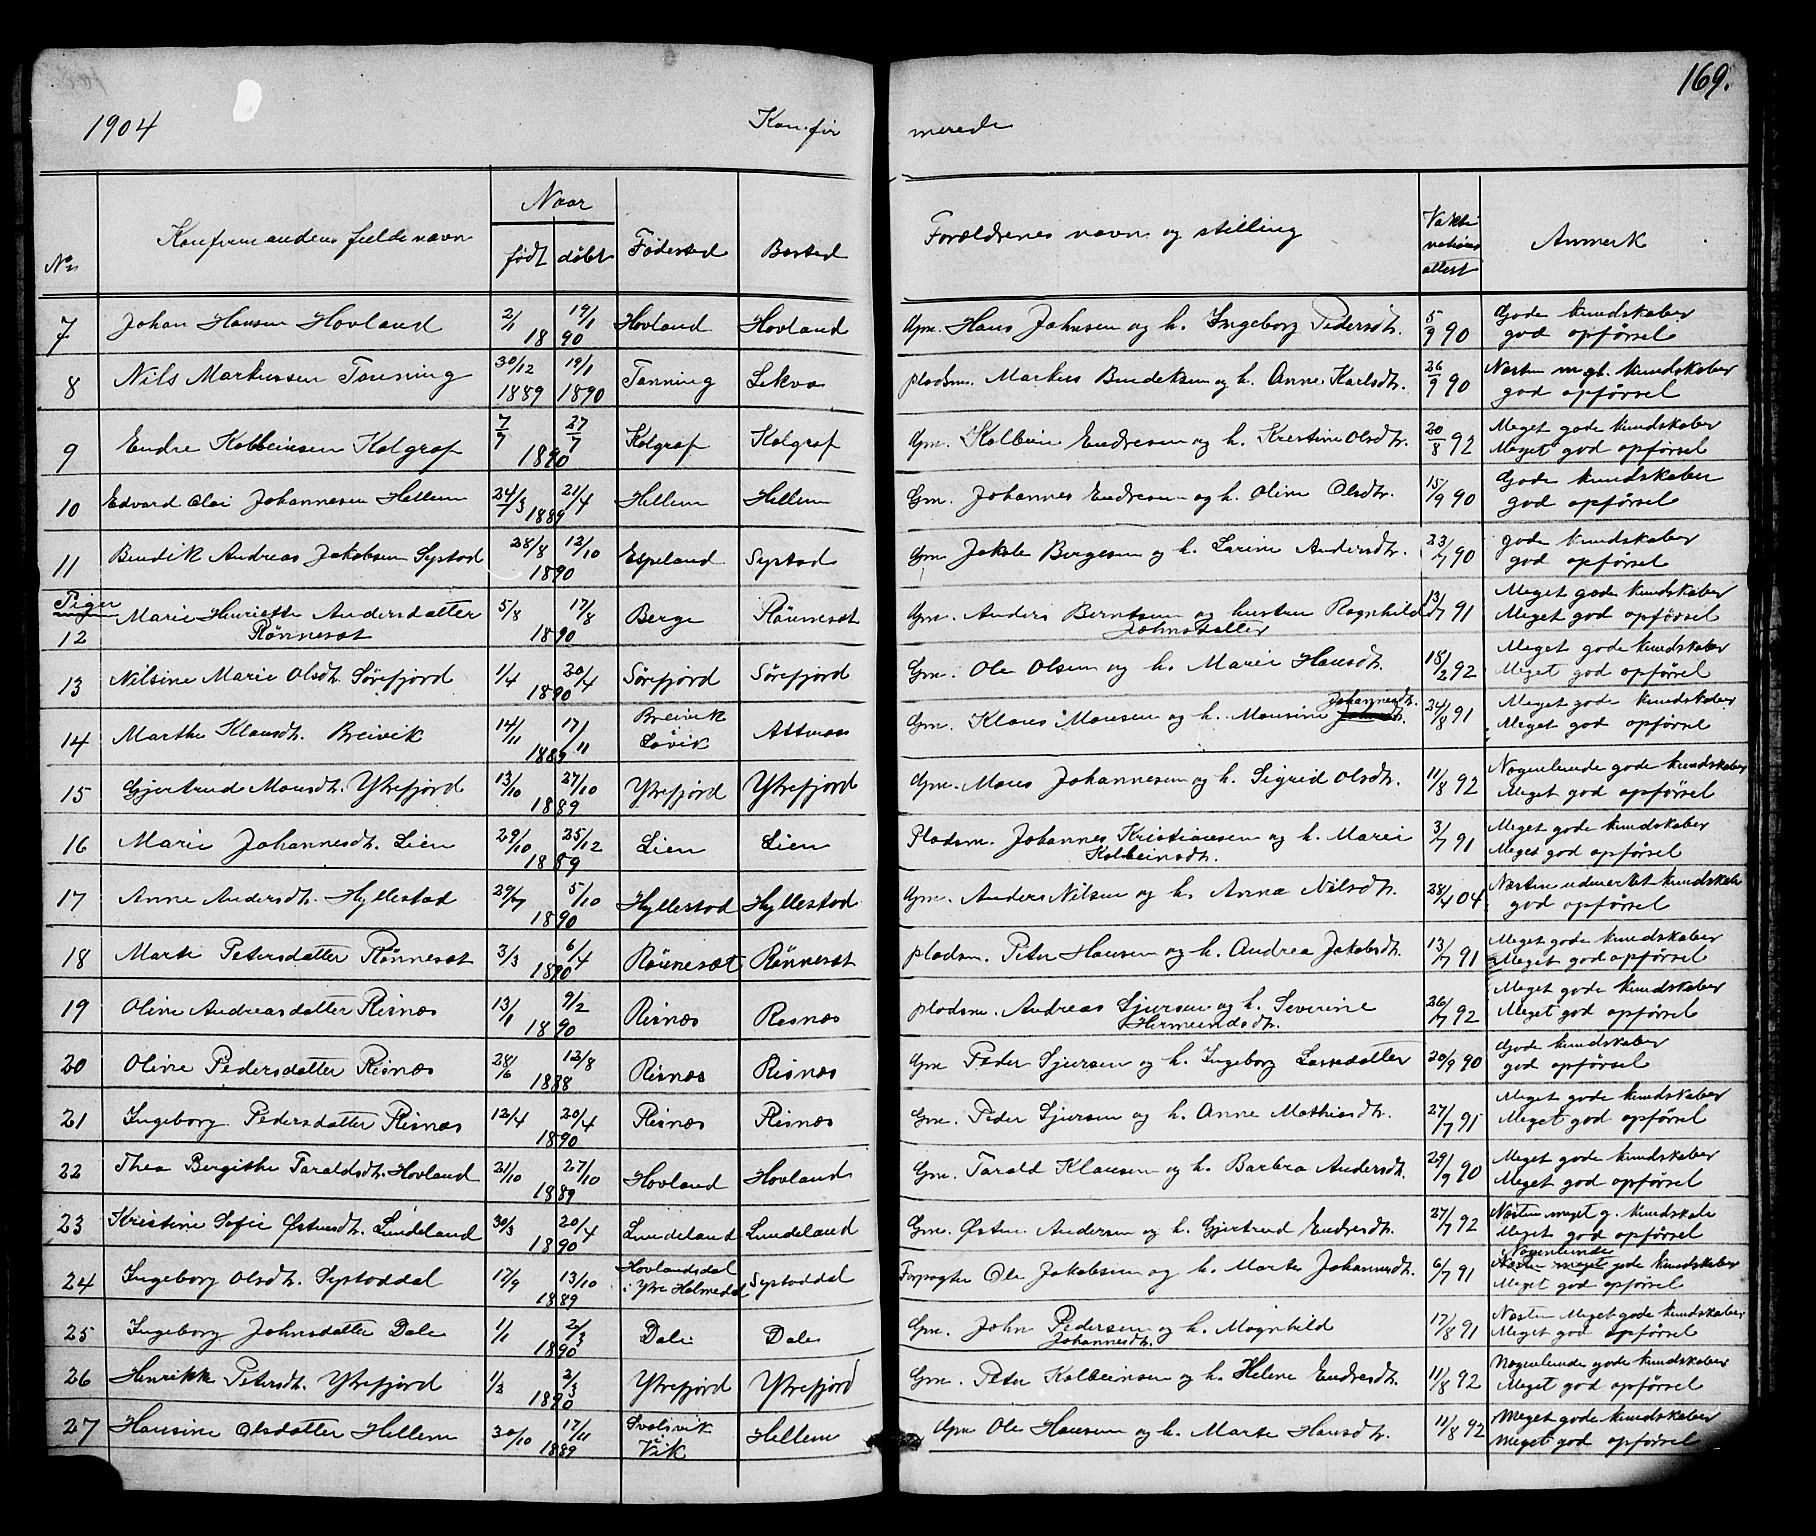 169.
1904 Konfir merede
No Konfirmandens fulde navn Naar født døbt Fødested Bosted Forældrenes navn og stilling Vakti nations attest Anmerk
7 Johan Hansen Hovland 2/1 19/1 1890 Hovland Hovland Gm. Hans Johnsen og h. Ingeborg Pedersdtr. 5/9 90 Gode kundskaber god opførsel
8 Nils Markussen Tanning 30/12 1889 19/1 1890 Tanning Lekva pladsm. Markus Bendiksen og h. Anne Karlsdtr. 26/9 90 Næsten m. gt. kundskaber god opførsel
9 Endre Kolbeinsen Kolgrof 7/7 27/7 1890 Kolgrof Kolgrof Gm. Kolbein Endresen og h. Kristine Olsdtr. 20/8 92 Meget gode kundskaber Meget god opførsel
10 Edvard Olai Johannesen Hellem 24/3 21/4 1889 Hellem Hellem Gm. Johannes Endresen og h. Oline Olsdtr. 15/9 90 Gode kundskaber god opførsel
11 Bendik Andreas Jakobsen Systad 28/8 12/10 1890 Espeland Systad Gm. Jakob Bergesen og h. Larine Andersdtr. 23/7 90 gode kundskaber god opførsel
Piger
12 Marie Henriette Andersdatter Rønneset 5/8 17/8 1890 Berge Rønneset Gm. Anders Berntsen og hustru Ragnhild Johnsdatter 13/7 91 Meget gode kundskaber Meget god opførsel
13 Nilsine Marie Olsdtr. Sørefjord 1/4 20/4 1890 Sørefjord Sørefjord Gm. Ole Olsen og h. Marie Hansdtr. 18/2 92 Meget gode kundskaber Meget god opførsel
14 Marthe Klausdtr. Breivik 14/11 17/11 1889 Breivik Løvik Attnæs Gm. Klaus Monsen og h. Monsine Johannesdtr. 24/8 91 Meget gode kundskaber Meget god opførsel
15 Gjertrud Monsdtr. Ytrefjord 13/10 27/10 1889 Ytrefjord Ytrefjord Gm. Mons Johannesen og h. Sigrid Olsdtr. 11/8 92 Nogenlunde gode kundskaber Meget god opførsel
16 Marie Johannesdtr. Lien 29/10 25/12 1889 Lien Lien Pladsm. Johannes Kristiansen og h. Marie Kolbeinsdtr. 3/7 91 Meget gode kundskaber Meget god opførsel
17 Anne Andersdtr. Hyllestad 29/7 5/10 1890 Hyllestad Hyllestad Gm. Anders Nilsen og h. Anna Nilsdtr. 28/4 04 Næsten udmerket kundskab god opførsel
18 Marte Petersdatter Rønneset 3/3 6/4 1890 Rønnesæt Rønneset pladsm. Peter Hansen og h. Andrea Jakobsdtr. 13/7 91 Meget gode kundskaber Meget god opførsel
19 Oline Andreasdatter Risnæs 13/1 9/2 1890 Risnæs Risnæs pladsm. Andreas Sjursen og h. Severine Hermundsdtr. 26/7 92 Meget gode kundskaber Meget god opførsel
20 Oline Pedersdatter Risnæs 28/6 12/8 1888 Risnæs Risnæs Gm Peder Sjursen og h. Ingeborg Lassedatter 20/9 90 Gode kundskaber god opførsel
21 Ingeborg Pedersdatter Risnæs 12/4 20/4 1890 Risnæs Risnæs Gm. Peder Sjursen og h. Anne Mathiasdtr. 27/7 91 Meget gode kundskaber Meget god opførsel
22 Thea Bergithe Taraldsdtr. Hovland 21/10 27/10 1889 Hovland Hovland Gm. Tarald Klausen og h. Barbra Andersdtr. 29/9 90 Meget gode kundskaber Meget god opførsel
23 Kristine Sofie Østensdtr. Lundeland 30/3 20/4 1890 Lundeland Lundeland Gm. Østen Andersen og h. Gjertrud Endresdtr. 27/7 92 Næsten meget g. kundskab Meget god opførsel
24 Ingeborg Olsdtr. Systaddal 17/9 13/10 1889 Hovlandsdal i Ytre Holmedal Systaddal Forpagter Ole Jakobsen og h. Marte Johannesdtr. 6/7 91 Nogenlunde Næsten meget gode kundskaber Meget god opførsel
25 Ingeborg Johnsdatter Dale 1/1 2/3 1890 Dale Dale Gm. John Pedersen og h. Magnhild Johannesdtr. 17/8 91 Næsten Meget gode kundskaber Meget god opførsel
26 Henrikk Petersdtr. Ytrefjord 1/2 2/3 1890 Ytrefjord Ytrefjord Gm. Peter Kolbeinsen og h. Helene Endresdtr. 11/8 92 Nogenlunde gode kundskaber Meget god opførsel
27 Hansine Olsdatter Hellem 30/10 17/11 1889 Svolsvik Vik Hellem Gm Ole Hansen og h. Marte Hansdtr. 11/8 92 Meget gode kundskaber Meget god opførsel